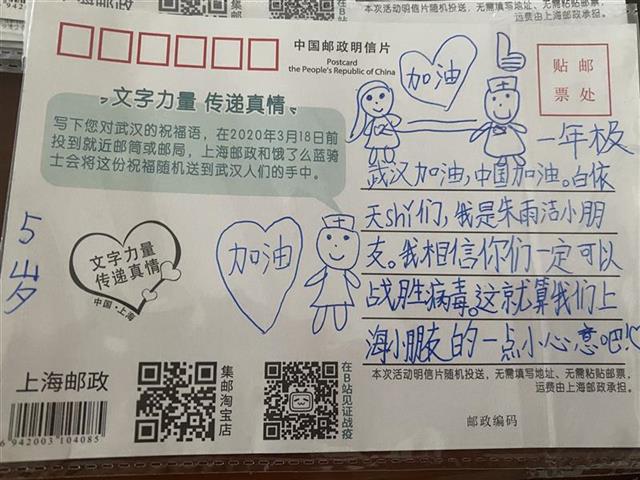 中国邮政明信片
Postcard
the People's Republic of China
贴邮
票处
文字力量 传递真情
写下您对武汉的祝福语，在2020年3月18日前
投到就近邮筒或邮局，上海邮政和饿了么蓝骑
士会将这份祝福随机送到武汉人们的手中。
加油
一年极
武汉加油，中国加油。白依
天shǐ们，我是朱雨洁小朋
友。我相信你们一定可以
战胜病毒。这就算我们上
海小朋友的一点小心意吧!
5岁
文字力量
传递真情
中国·上海
加油
上海邮政
6942003104085
集邮淘宝店
在B站见证战疫
本次活动明信片随机投送，无需填写地址、无需粘贴邮票，
运费由上海邮政承担。
邮政编码
本次活动明信片随机投送，无需填写地址、无需粘贴邮票，
运费由上海邮政承担。